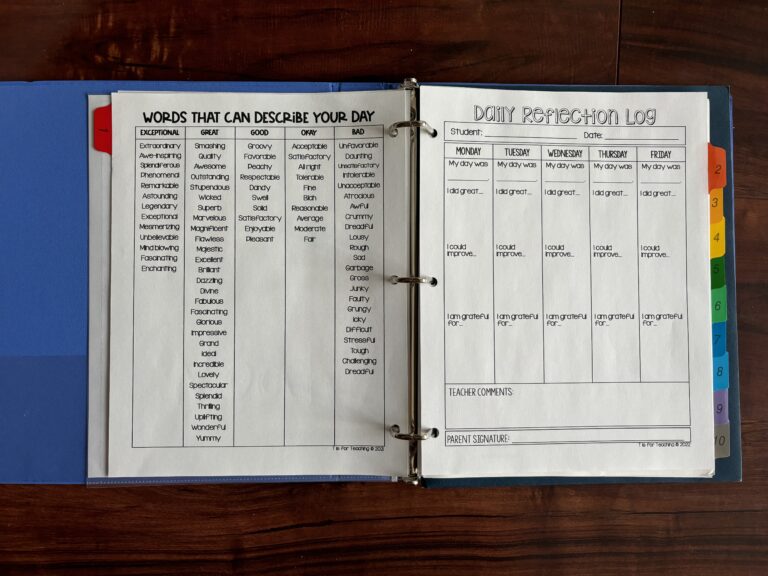 WORDS THAT CAN DESCRIBE YOUR DAY
EXCEPTIONAL
Extraordinary
Awe-inspiring
Splendiferous
Phenomenal
Remarkable
Astounding
Legendary
Exceptional
Mesmerizing
Unbelievable
Mind blowing
Fascinating
Enchanting
GREAT
Smashing
Quality
Awesome
Outstanding
Stupendous
Wicked
Superb
Marvelous
Magnificent
Flawless
Majestic
Excellent
Brilliant
Dazzling
Divine
Fabulous
Fascinating
Glorious
Impressive
Grand
Ideal
Incredible
Lovely
Spectacular
Splendid
Thrilling
Uplifting
Wonderful
Yummy
GOOD
Groovy
Favorable
Peachy
Respectable
Dandy
Swell
Solid
Satisfactory
Enjoyable
Pleasant
OKAY
Acceptable
Satisfactory
All right
Tolerable
Fine
Blah
Reasonable
Average
Moderate
Fair
BAD
Unfavorable
Daunting
Unsatisfactory
Intolerable
Unacceptable
Atrocious
Awful
Crummy
Dreadful
Lousy
Rough
Sad
Garbage
Gross
Junky
Faulty
Grungy
Icky
Difficult
Stressful
Tough
Challenging
Dreadful
T is For Teaching ©
Daily Reflection Log
Student: Date:
MONDAY TUESDAY WEDNESDAY THURSDAY FRIDAY
My day was My day was My day was My day was My day was
I did great... I did great... I did great... I did great... I did great...
I could I could I could I could I could
improve... improve... improve... improve... improve...
I am grateful I am grateful I am grateful I am grateful I am grateful
for... for... for... for... for...
TEACHER COMMENTS:
PARENT SIGNATURE:
T is For Teaching © 2022
2
3
4
5
6
7
8
9
10